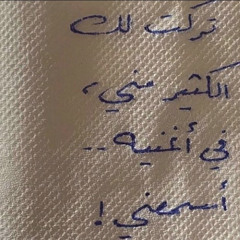 تركت لك
الكثير مني،
في أغنيه ..
أسمعني !